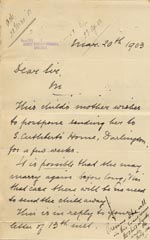 Mar. 20th 1903
Dear Sir,
This childs mother wishes
to postpone sending her to
S. Cuthbert's Home, Darlington,
for a few weeks.
It is possible that she may
marry again before long, & in
that case there will be no need
to send the child away.
This is in reply to your
letter of 13th inst.